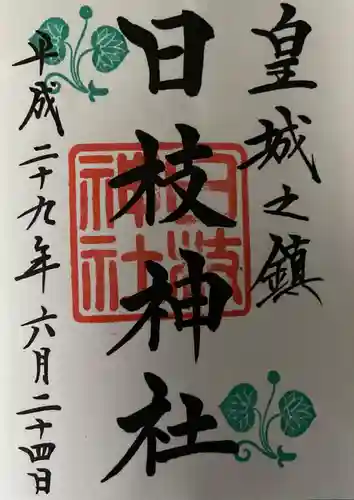 皇城之鎮
日枝神社
平成二十九年六月二十四日
日枝神社